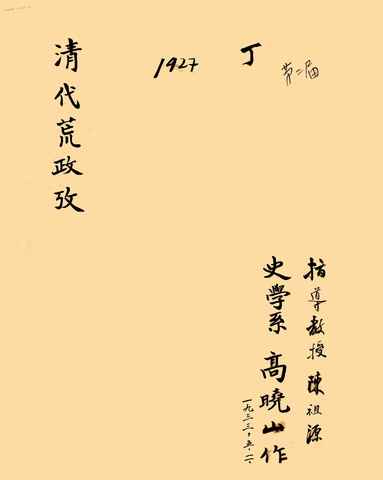 清代荒政攷
1927
丁
第二届
指導教授 陳祖源
史學系 高曉山作
一九三三·五·二·